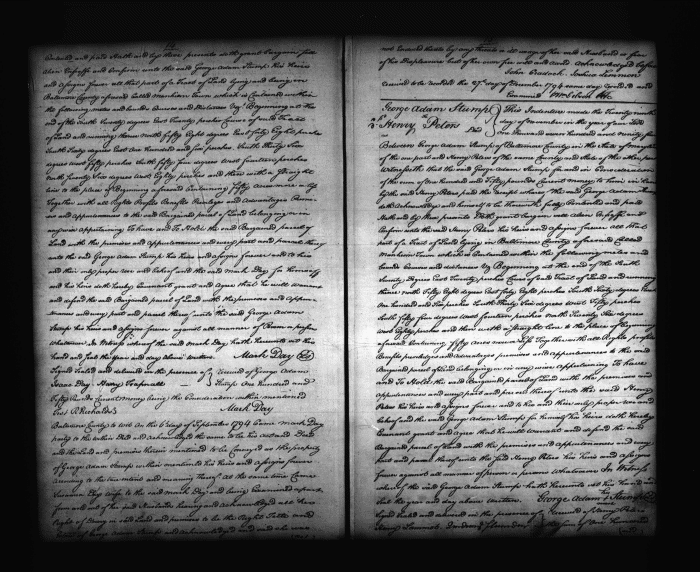 contented and paid Hath and by these presents doth grant bargain sell
alien Enfeoffe and Confirm unto the said George Adam Stump his heirs
and assigns forever all that part of a Tract of Land lying and being in
Baltimore County aforesaid Called which is Contained within
the following metes and bounds Courses and distances Viz Beginning at the
end of the South Seventy degrees East Twenty perches Course of said Tract
of Land and running thence North fifty Eight degrees East forty Eight perches
South forty degrees East one hundred and six perches South thirty Six
degrees west fifty perches South fifty five degrees west fourteen perches
North Seventy Six degrees West Eighty perches and then with a straight
line to the place of Beginning aforesaid Containing fifty acres more or less
Together with all Rights Profits Benefits Priviledge and Advantages
and appurtenances to the said Bargained parcel of Land belonging or in
anywise appertaining To have and To Hold the said Bargained parcel of
Land with the premises and appurtenances and every part and parcel thereof
unto the said George Adam Stump his heirs and assigns forever and to his
and their only proper use and behoof and the said Mark Day for himself
and his heirs doth hereby Covenant grant and agree that he will warrant
and defend the said Bargained parcel of Land with the premises and
and every part and parcel thereof unto the said George Adam
Stump his heirs and assigns forever against all manner of Person or persons
Whatsoever In Witness whereof the said Mark Day hath hereunto set his
hand and seal the day and year above written Mark Day
Signed Sealed and delivered in the presence of Received of George Adam
Isaac Day Henry Stump One hundred and
fifty pounds Current money being the Consideration within mentioned
Test Richards Mark Day
Baltimore County to wit On the 6 day of September 1794 Came Mark Day
party to the within Deed and acknowledged the same to be his act and Deed
and the land and premises therein mentioned to be Conveyed as the property
of George Adam Stump within mentioned his heirs and assigns forever
according to the true intent and meaning thereof at the same time Came
Susanna Day wife to the said Mark Day and being Examined apart
from and out of her said Husbands hearing and acknowledged all her
Right of Dower in said Land and premises to be the Right Title and
of George Adam Stump and acknowledged
not induced thereto by any threats or ill usage of her said Husband or fear
of his displeasure but of her own free will and accord acknowledged before
John Cradock Joshua
received to be recorded the 27th day of November 1794 same day recorded and
Examined
George Adam Stump This Indenture made the Twenty
Henry Peters day of November in the year of our Lord
Deed One thousand seven hundred and ninety four
Between George Adam Stump of Baltimore County in the State of Maryland
of the one part and Henry Peters of the same County and State of the other part
Witnesseth that the said George Adam Stump for and in Consideration
of the sum of One hundred and fifty pounds Current money to him in hand
by the said Henry Peters paid the receipt whereof the said George Adam Stump
doth acknowledge and himself to be therewith fully Contented and paid
Hath and by these presents Doth grant bargain sell alien Enfeoffe and
Confirm unto the said Henry Peters his heirs and assigns forever all that
part of a Tract of Land lying in Baltimore County aforesaid Called
which is Contained within the following metes and
bounds Courses and distances Viz Beginning at the end of the South
Seventy Degrees East Twenty perches Course of said Tract of Land and running
thence North fifty Eight degrees East forty Eight perches South forty degrees East
One hundred and six perches South Thirty Six degrees West fifty perches
South fifty five degrees West fourteen perches North Seventy Six degrees
West Eighty perches and then with a straight line to the place of Beginning
aforesaid Containing fifty acres more or less Together with all Rights profits
Benefits priviledge and advantages premises and appurtenances to the said
Bargained parcel of Land belonging or in any wise appertaining To have
and To Hold the said Bargained parcel of Land with the premises and
appurtenances and every part and parcel thereof unto the said Henry
Peters his heirs and assigns forever and to his and their only proper use and
behoof and the said George Adam Stump for himself his heirs doth hereby
Covenant grant and agree that he will warrant and defend the said
Bargained parcel of Land with the premises and appurtenances and every
part and parcel thereof unto the said Henry Peters his heirs and assigns
forever against all manner of person or persons Whatsoever In Witness
whereof the said George Adam Stump hath hereunto set his hand and
seal the day and year above written George Adam Stump
Signed sealed and delivered in the presence of Received of Henry Peters
the sum of One hundred